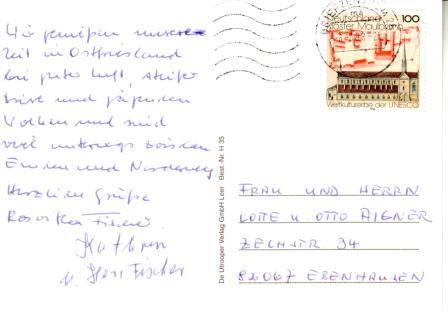 Wir genießen unsere
Zeit in Ostfriesland
bei guter Luft, steifer
Brise und jagenden
Wolken und sind
viel unterwegs zwischen
Emden und Norderney
Herzliche Grüße
Fischer
Kathrin
u. Herr Fischer
De Utrooper Verlag GmbH Leer Best.-Nr. H 35
Deutschland 100
Kloster Maulbronn
Weltkulturerbe der UNESCO
FRAU UND HERRN
LOTTE U. OTTO AIGNER
ZECHSTR. 34
82067 EBENHAUSEN